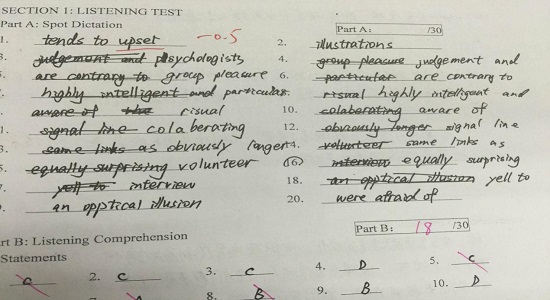 SECTION 1: LISTENING TEST
Part A: Spot Dictation
Part A: /30
1. tends to upset -0.5 2. illustrations
3. judgement and psychologists 4. group pleasure judgement and
5. are contrary to group pleasure 6. particular are contrary to
highly intelligent and particular 8. risual highly intelligent and
aware of the risual 10. colaberating aware of
1. signal line colaberating 12. obviously longer signal line
3. same links as obviously longer 14. volunteer same links as
5. equally surprising volunteer 16. interview equally surprising
7. yell to interview 18. an opptical illusion yell to
an opptical illusion 20. were afraid of
rt B: Listening Comprehension
Part B: 18 /30
Statements
C 2. C 3. C 4. D 5. C
8. B 9. B 10. D